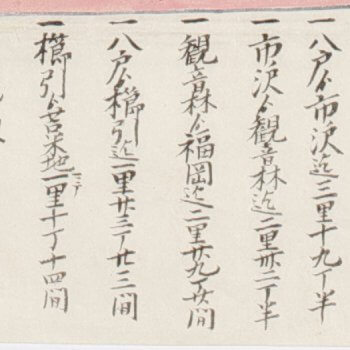 一八戸ゟ市沢迄三里十九丁半
一市沢ゟ観音林迄二里卅二丁半
一観音林ゟ福岡迄二里廿九丁廿間
一八戸ゟ櫛引迄一里廿三丁廿三間
一櫛引ゟ苫米地一里十丁十四間